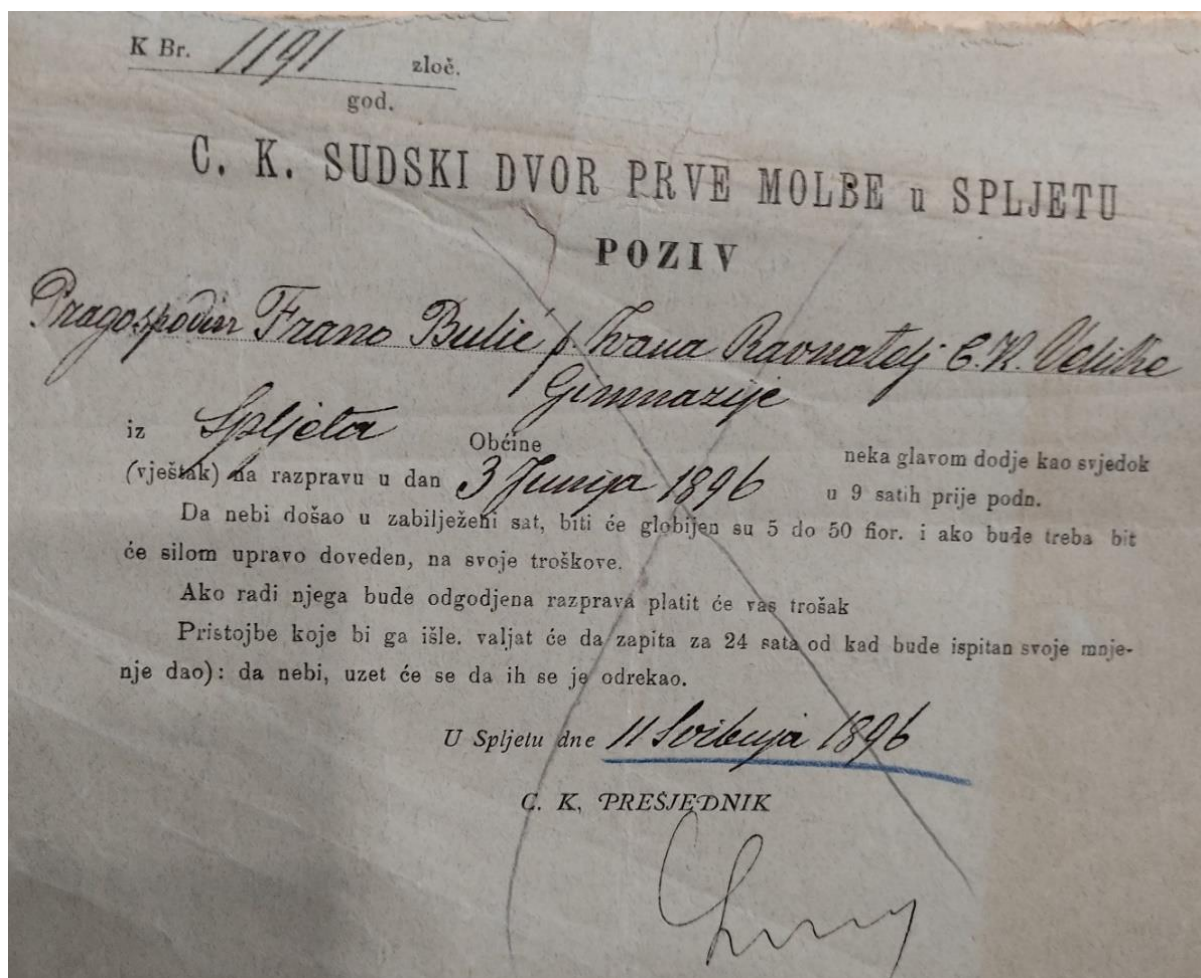 K Br. 1191 zloč.
god.
C. K. SUDSKI DVOR PRVE MOLBE u SPLJETU
POZIV
Pragospodin Frano Bulić p. Ivana Ravnatelj C. K. Velike
Gimnazije
iz Spljeta Občine neka glavom dodje kao svjedok
(vještak) na razpravu u dan 3 Junija 1896 u 9 satih prije podn.
Da nebi došao u zabilježeni sat, biti će globijen su 5 do 50 fior. i ako bude treba bit
će silom upravo doveden, na svoje troškove.
Ako radi njega bude odgodjena razprava platit će vas trošak
Pristojbe koje bi ga išle. valjat će da zapita za 24 sata od kad bude ispitan svoje mnje-
nje dao): da nebi, uzet će se da ih se je odrekao.
U Spljetu dne 11 Svibnja 1896
C. K. PREŠJEDNIK